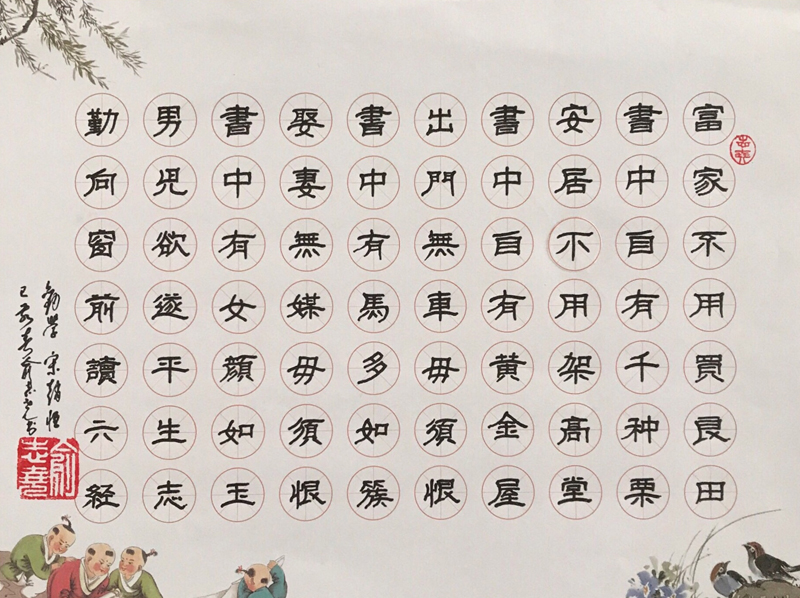 富家不用買良田
書中自有千种粟
安居不用架髙堂
書中自有黄金屋
出門無車毋須恨
書中有馬多如簇
娶妻無媒毋須恨
書中有女顔如玉
男児欲遂平生志
勤向窗前讀六経
勧学 宋 趙恒
己亥春
俞志堯
志堯